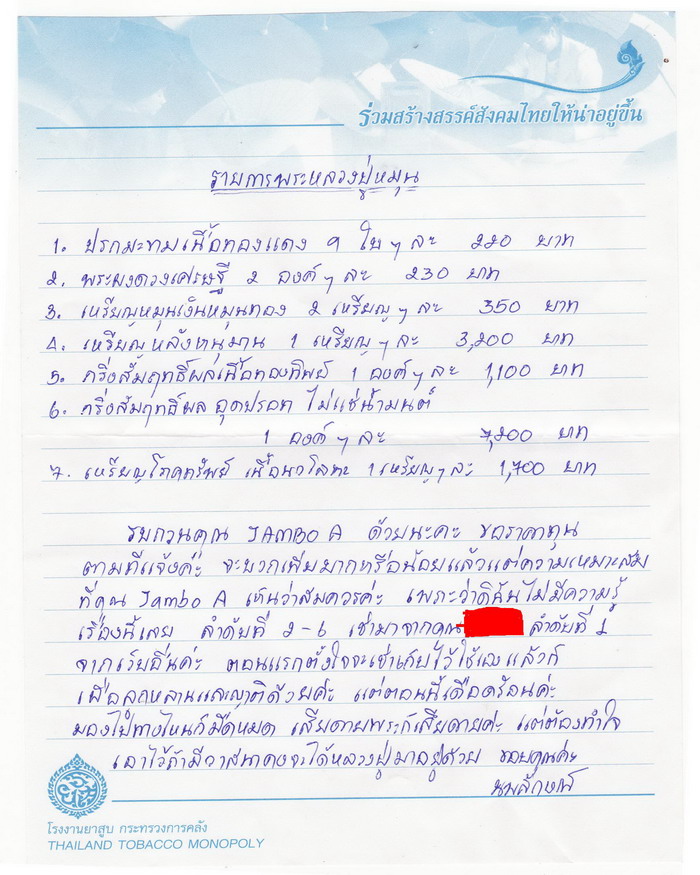 ร่วมสร้างสรรค์สังคมไทยให้น่าอยู่ขึ้น
รายการพระหลวงปู่หมุน
1. ปรกมะขามเนื้อทองแดง 9 ใบๆ ละ 220 บาท
2. พระผงดวงเศรษฐี 2 องค์ๆ ละ 230 บาท
3. เหรียญหมุนเงินหมุนทอง 2 เหรียญๆ ละ 350 บาท
4. เหรียญหลังหนุมาน 1 เหรียญๆ ละ 3,200 บาท
5. กริ่งสัมฤทธิ์ผลเนื้อทองทิพย์ 1 องค์ๆ ละ 1,100 บาท
6. กริ่งสัมฤทธิ์ผล อุดปรอท ไม่แช่น้ำมนต์
1 องค์ๆ ละ 7,200 บาท
7. เหรียญโภคทรัพย์ เนื้อนวโลหะ 1 เหรียญๆ ละ 1,700 บาท
รบกวนคุณ JAMBO A ด้วยนะคะ ขอราคาทุน
ตามที่แจ้งค่ะ จะบวกเพิ่มมากหรือน้อยแล้วแต่ความเหมาะสม
ที่คุณ Jambo A เห็นว่าสมควรค่ะ เพราะว่าดิฉันไม่มีความรู้
เรื่องนี้เลย ลำดับที่ 2-6 เช่ามาจากคุณ ลำดับที่ 1
จากเว็บอื่นค่ะ ตอนแรกตั้งใจจะเช่าเก็บไว้ใช้เองแล้วก็
เผื่อลูกหลานและญาติด้วยค่ะ แต่ตอนนี้เดือดร้อนค่ะ
มองไปทางไหนก็มืดหมด เสียดายพระก็เสียดายค่ะ แต่ต้องทำใจ
เอาไว้ถ้ามีวาสนาคงจะได้หลวงปู่มาอยู่ด้วย ขอบคุณค่ะ
นพลักษณ์
โรงงานยาสูบ กระทรวงการคลัง
THAILAND TOBACCO MONOPOLY